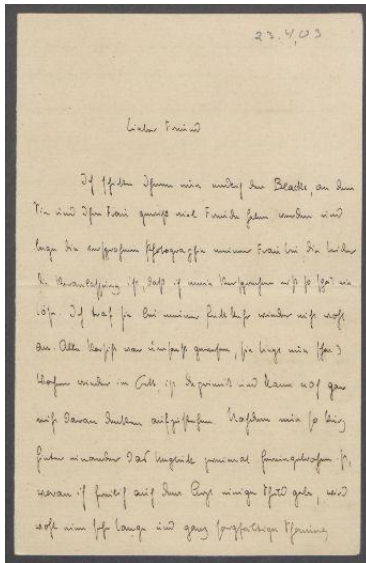 23.4.03
Lieber Freund
Ich schicke Ihnen nun endlich den Blake, an dem
Sie und Ihre Frau gewiß viel Freude haben werden und
lege die versprochene Photographie meiner Frau bei, die leider
die Veranlassung ist, daß ich mein Versprechen erst so spät ein
löse. Ich traf sie bei meiner Rückkehr wieder nicht wohl
an. Alle Vorsicht war umsonst gewesen, sie liegt nun schon 3
Wochen wieder im Bett, ist deprimirt und kann noch gar
nicht daran denken aufzustehen. Nachdem nun so kurz
hinter einander das Unglück zweimal hereingebrochen ist,
woran ich freilich auf den Arzt einige Schuld gebe, wird
wohl eine sehr lange und ganz sorgfältige Schonung